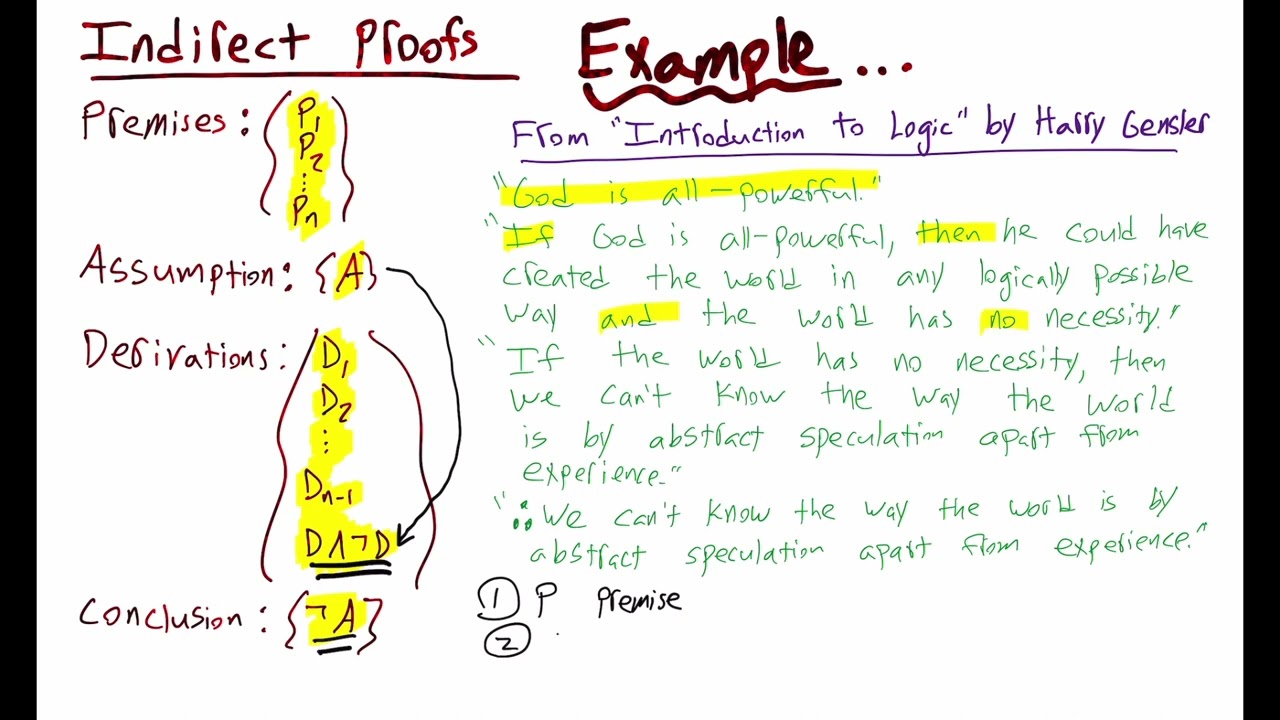 Indirect Proofs
Premises: { P1
P2
⋮
Pn }
Assumption: {A}
Derivations: { D1
D2
⋮
Dn-1
D∧¬D }
Conclusion: {¬A}
Example...
From "Introduction to Logic" by Harry Gensler
"God is all-powerful."
"If God is all-powerful, then he could have
created the world in any logically possible
way and the world has no necessity."
"If the world has no necessity, then
we can't know the way the world
is by abstract speculation apart from
experience."
"∴ We can't know the way the world is by
abstract speculation apart from experience."
① P Premise
②